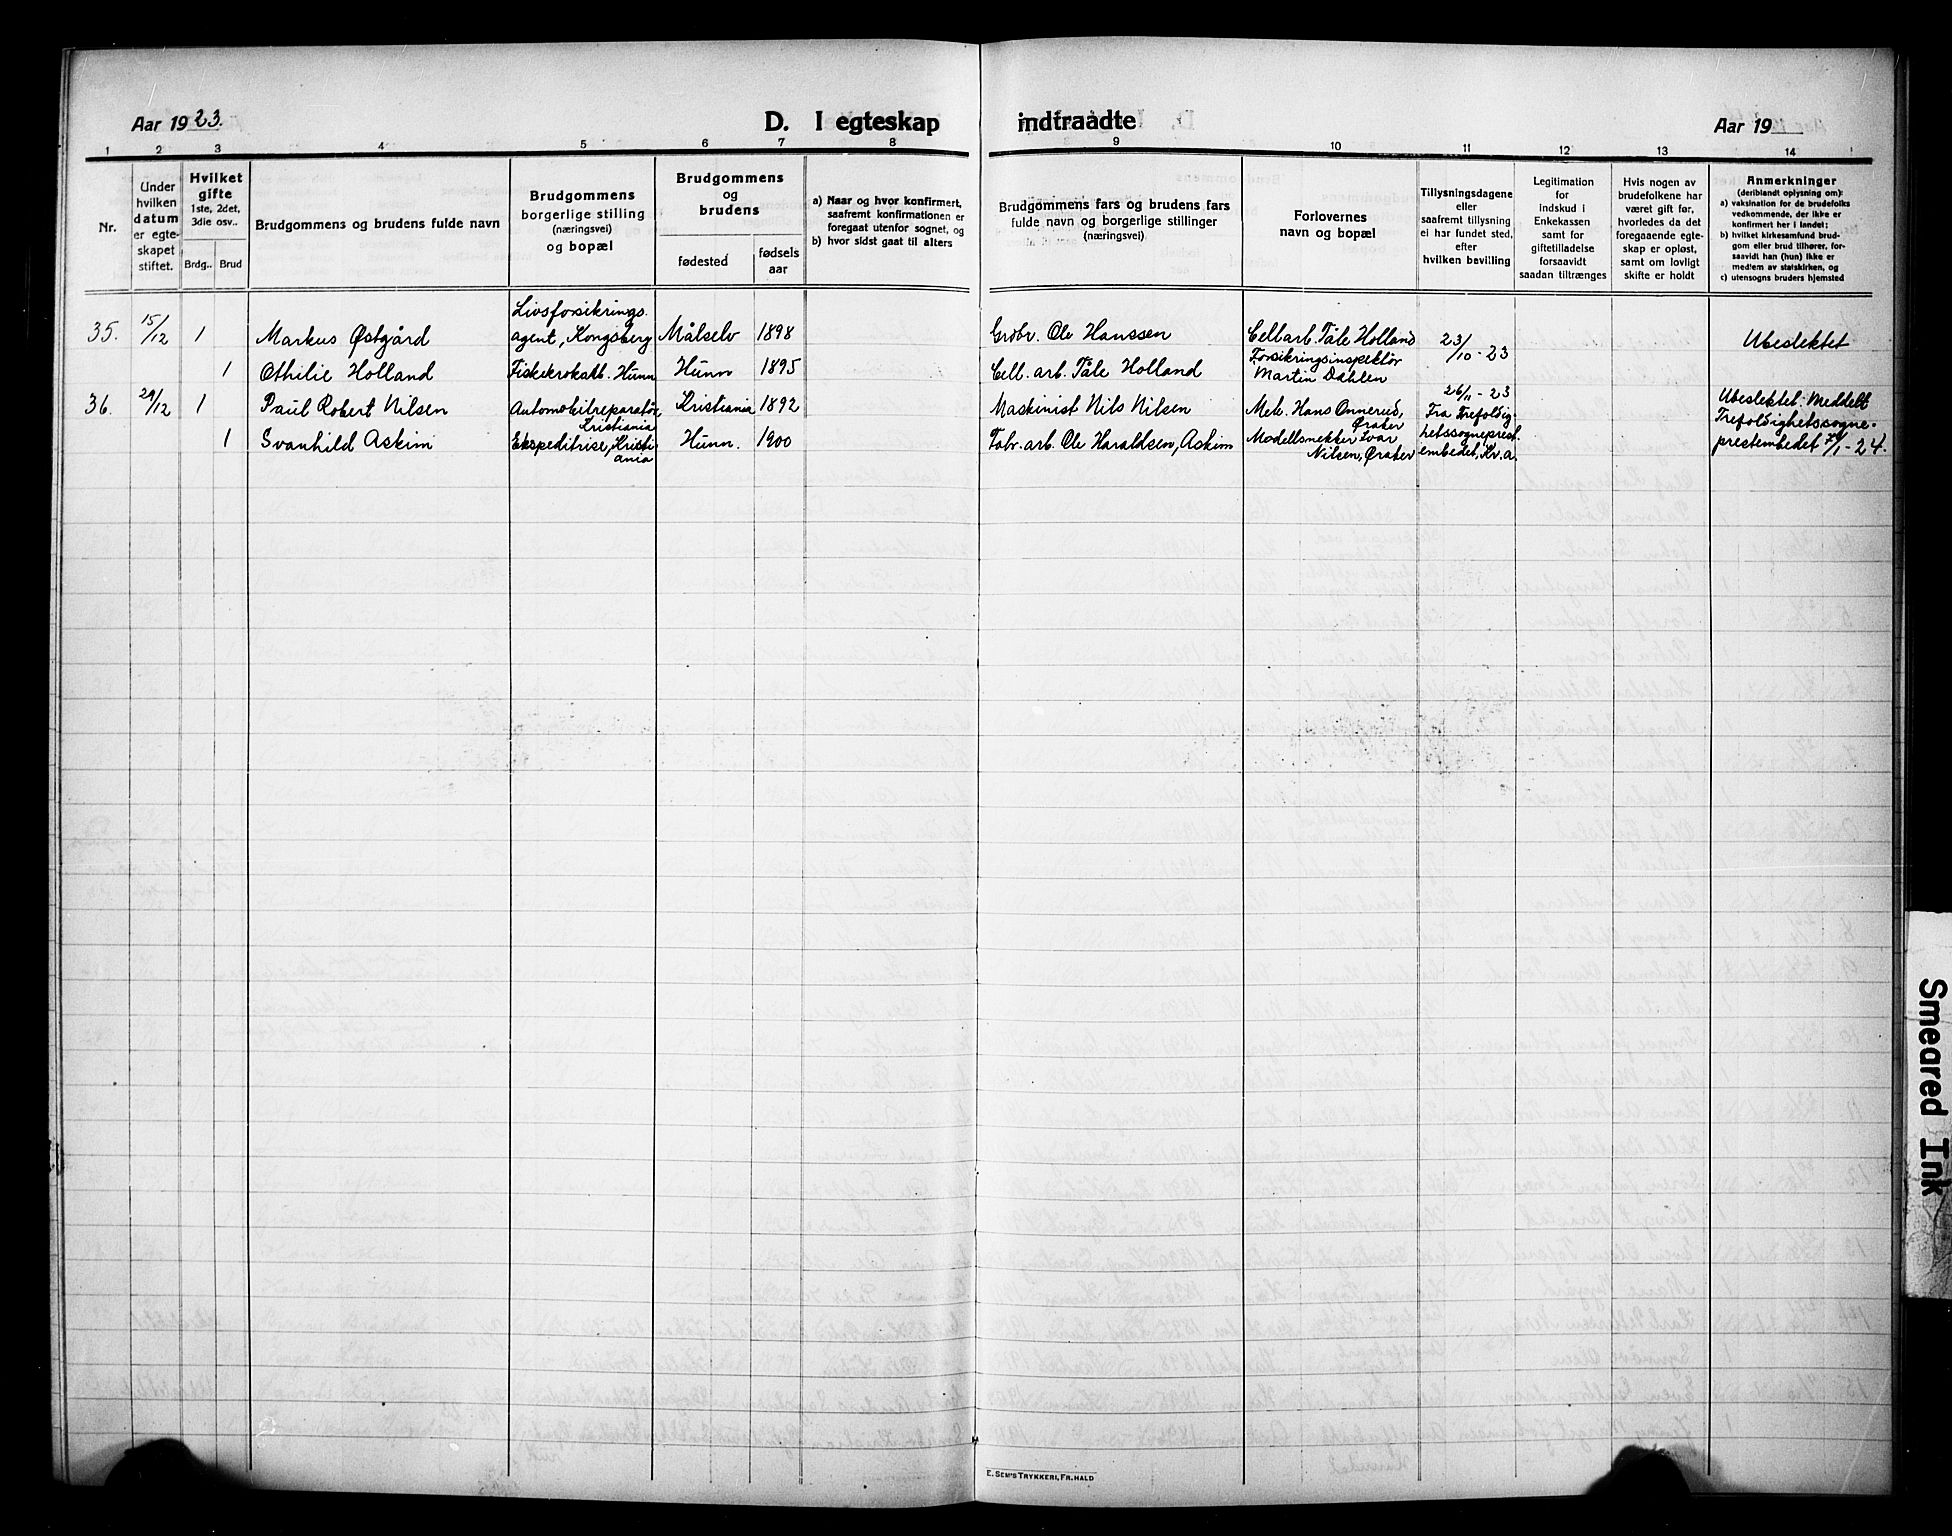 Aar 1923.
D. I egteskap indtraadte
Aar 19
1 2 3 4 5 6 7 8 9 10 11 12 13 14
Nr.
Under
hvilken
datum
er egte-
skapet
stiftet.
Hvilket
gifte
1ste, 2det,
3die osv..
Brdg.. Brud
Brudgommens og brudens fulde navn
Brudgommens
borgerlige stilling
(næringsvei)
og bopæl
Brudgommens
og
brudens
fødested
fødsels
aar
a) Naar og hvor konfirmert,
saafremt konfirmationen er
foregaat utenfor sognet, og
b) hvor sidst gaat til alters
Brudgommens fars og brudens fars
fulde navn og borgerlige stillinger
(næringsvei)
Forlovernes
navn og bopæl
Tillysningsdagene
eller
saafremt tillysning
ei har fundet sted,
efter
hvilken bevilling
Legitimation
for
indskud i
Enkekassen
samt for
giftetilladelse
forsaavidt
saadan tiltrænges
Hvis nogen av
brudefolkene har
været gift før,
hvorledes da det
foregaaende egte-
skap er opløst,
samt om lovligt
skifte er holdt
Anmerkninger
(deriblandt oplysning om):
a) vaksination for de brudefolks
vedkommende, der ikke er
konfirmert her i landet;
b) hvilket kirkesamfund brud-
gom eller brud tilhører, for-
saavidt han (hun) ikke er
medlem av statskirken, og
c) utensogns bruders hjemsted
35. 15/12 1 Markus Østgård Livsforsikrings.
agent, Kongsberg Målselv 1898 Grdbr. Ole Hanssen Cellarb. Tåle Holland 23/10-23 Ubeslektet
1 Othilie Holland Fiskekrokarb. Hunn Hunn 1895 Cell. arb. Tåle Holland Forsikringsinspektør
Martin Dahlen
36. 29/12 1 Paul Robert Nilsen Automobilreparatør,
Kristiania Kristiania 1892 Maskinist Nils Nilsen Mek. Hans Onnerud,
Øraber 26/11-23
Fra Trefoldig- Ubeslektet. Meddelt
Trefoldighetssogne-
1 Svanhild Askim Ekspeditrise, Kristi-
ania Hunn. 1900 Fabr. arb. Ole Haraldsen, Askim. Modellsnekker Ivar
Nilsen, Ørabер hetssogneprest-
embedet, Kr.a. prestembedet /1-24.
E. SEM'S TRYKKERI, FR. HALD
Smeared Ink